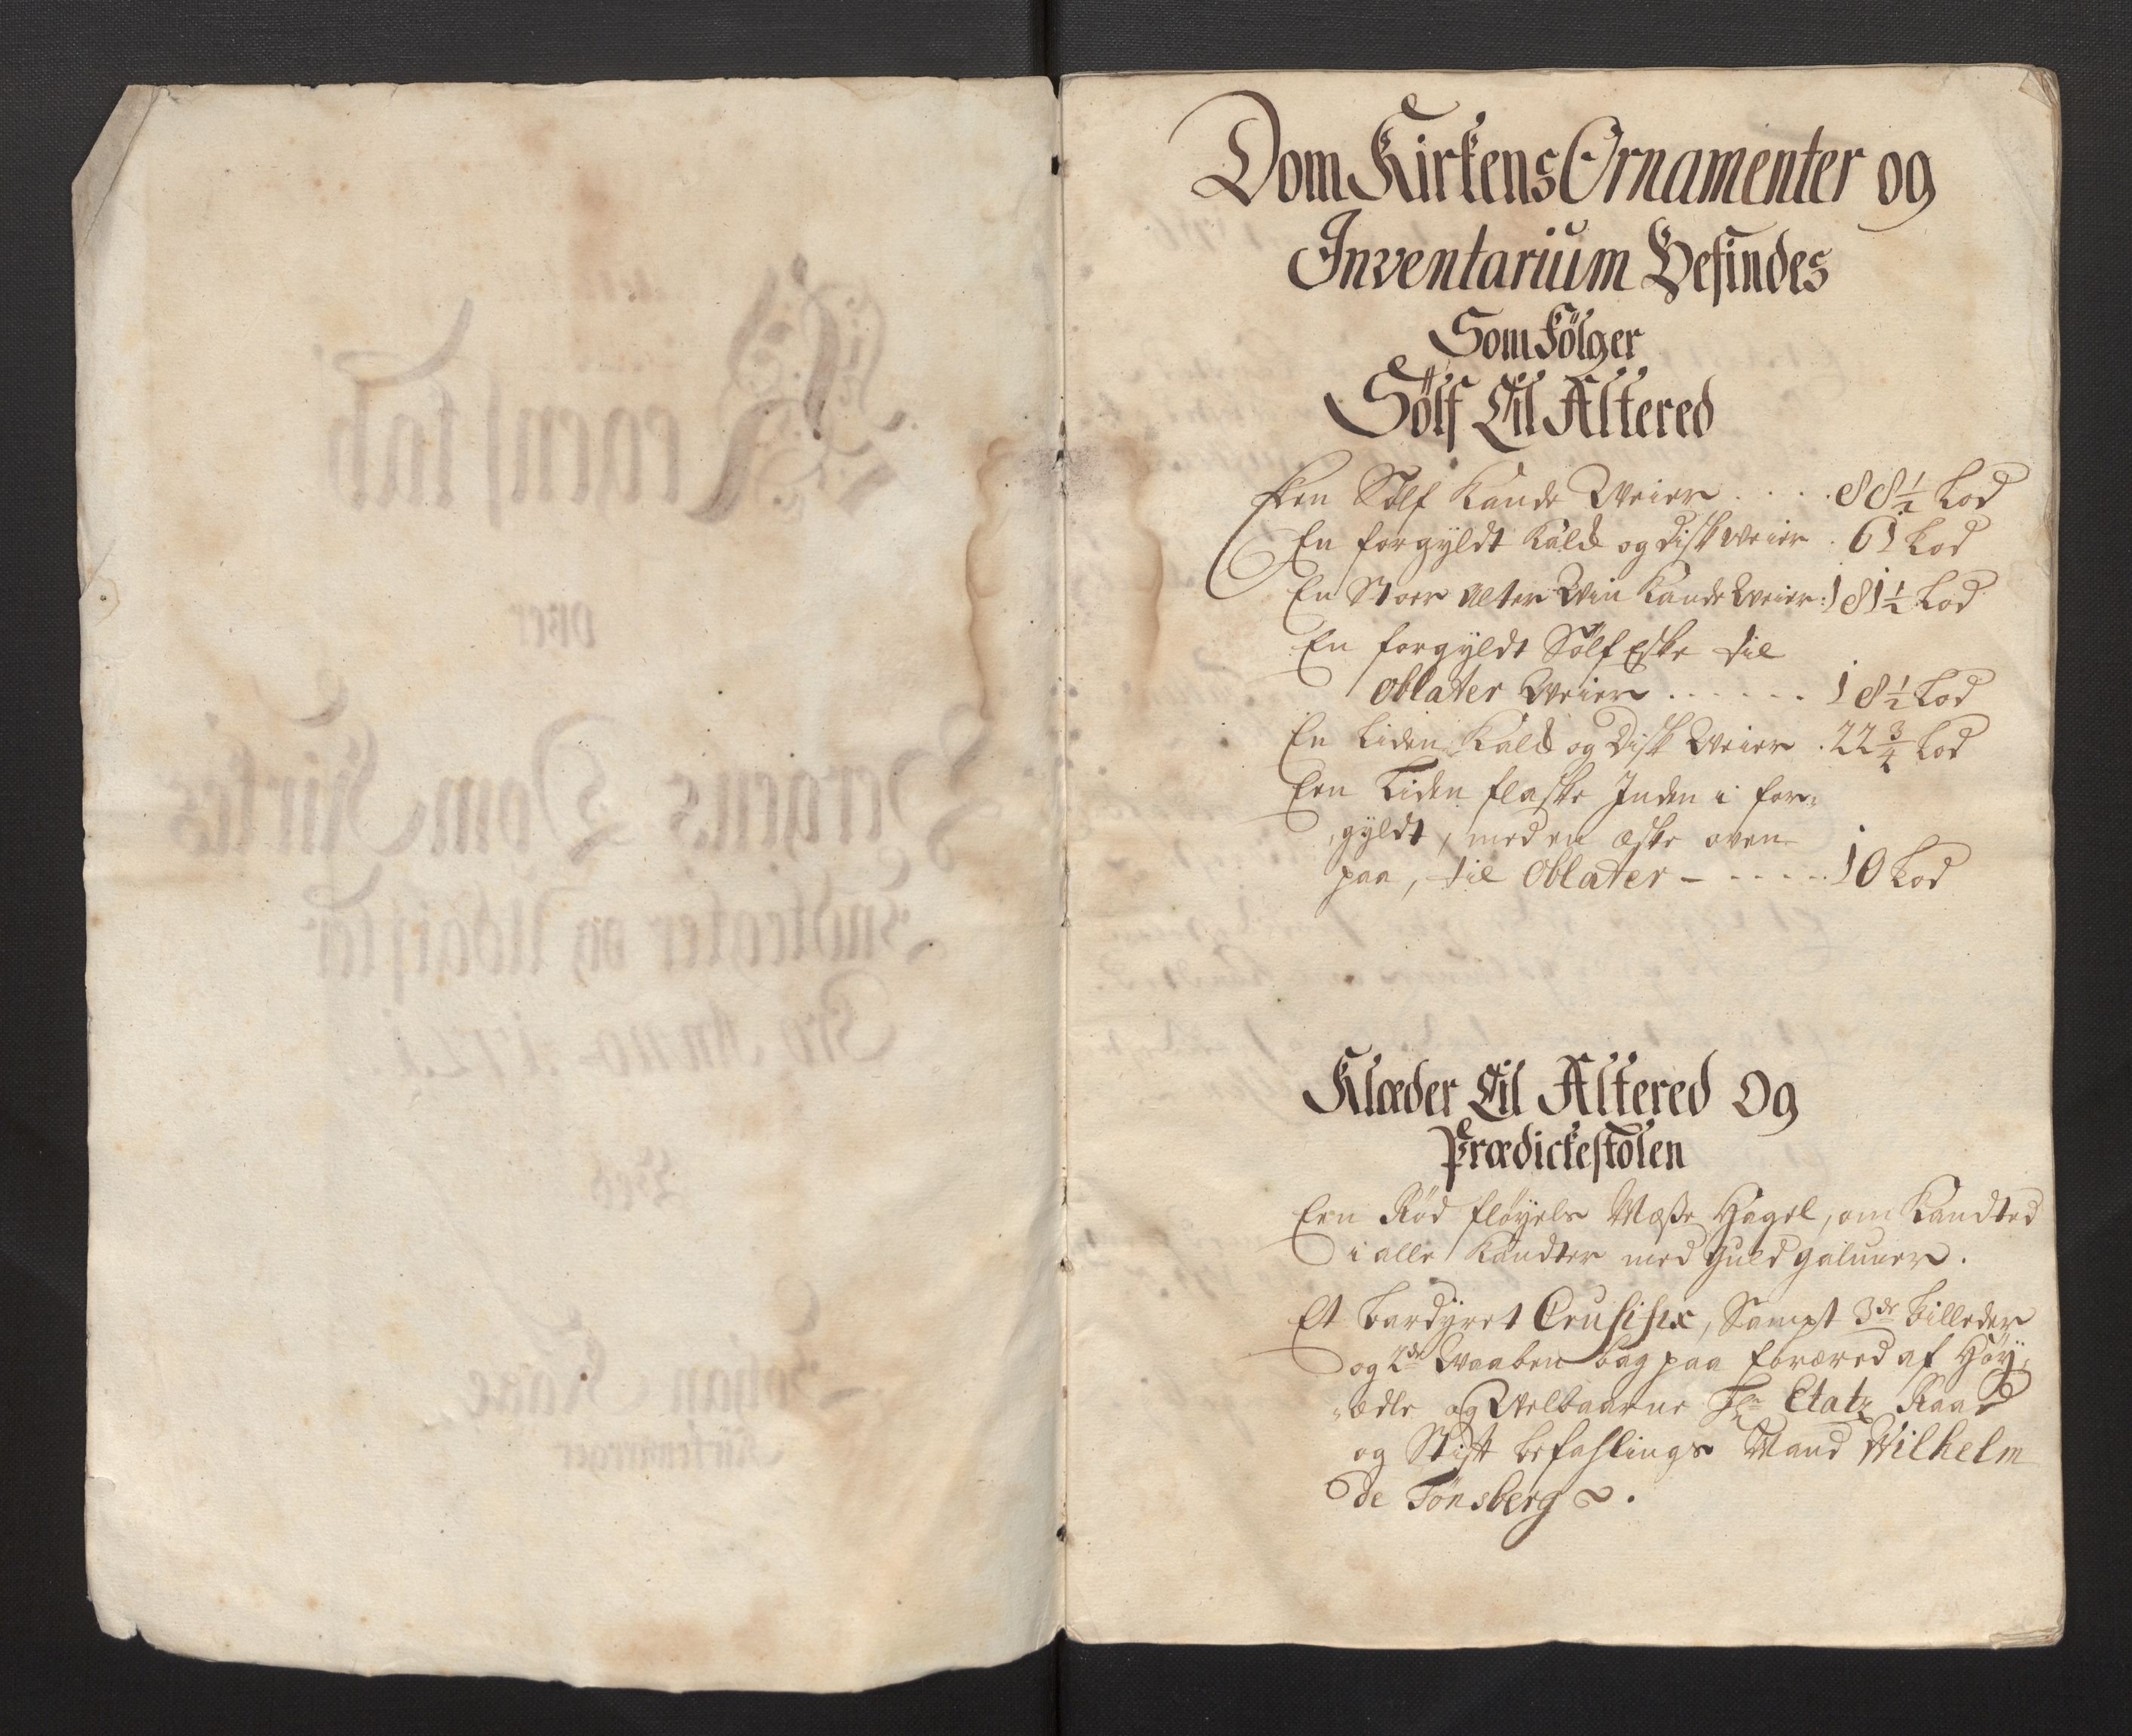 Dom Kirkens Ornamenter og
Inventarium Befindes
Som Fölger
Sölf Til Altered
Een Sølf Kande Weier . . . . 88½ Lod
En forgyldt Kalck og disk weier . 61 Lod
En Stoer Alter Win Kande Weier : 181½ Lod
En forgyldt Sølf Eske til
Oblater Weier . . . . . . 18½ Lod
En Liden Kalck og Disk Weier . 22¾ Lod
Een Liden flaske Inden i for-
gyldt, med en æske oven
paa, til Oblater - - - - - . 10 Lod
Klæder Til Altered Og
Prædickestolen
Een Rød fløyels Mæsse Hagel, om Kandted
i alle Kandter med Guld galuner.
Et bardyret Crusifix, Sampt 3de billeder
og 2de Waaben bag paa foræred af Høy-
ædle og Welbaarne Hr Etatz Raad
og Stift befahlings Mand Wilhelm
de Tønsberg.
Regnskab
over
Bergens Dom Kirkes
Indtegter og Udgifter
Pro Anno 1721
Ved
Kirkewerger